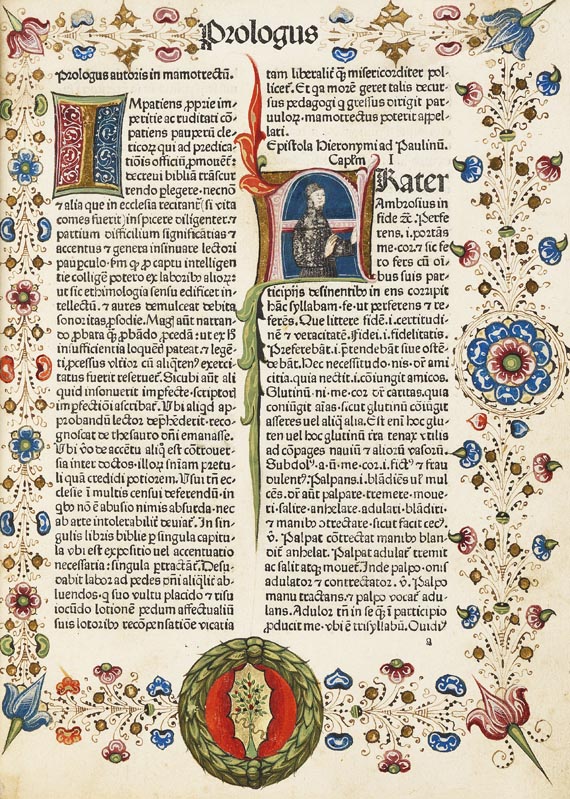 Prologus
Prologus autoris in mamotrectū.
IMpatiens ꝓprie im-
petitie ac ruditati cō-
patiens pauperū cle-
ricoꝝ qui ad predica-
tiōis officiū ꝓmouēt̄
decreui bibliā trāscur
rendo ꝑlegere. necnō
⁊ alia que in ecclesia recitant̄ (si vita
comes fuerit) inspicere diligenter. ⁊
partium difficilium significatias ⁊
accentus ⁊ genera insinuare lectori
paupculo. ꝓm ꝙ ꝓ captu intelligen
tie colligē potero ex laborib⁹ alioꝝ
ut sic ethimologia sensu edificet in-
tellectū. ⁊ aures demulceat debita
sonoritas ꝓsodie. Magꝭ aūt narran-
do ꝓbata ꝗ̄ ꝓbādo ꝓcedā: ut ex hꝭ
⁊ insufficientia loquētꝭ pateat. ⁊ legē-
tꝭ ꝓcessus vlterior cū aliqñ exerci-
tatus fuerit reseruet̄. Sicubi aūt ali
quid insonuerit imꝑfecte. scriptori
imꝑfectiōi ascribat̄. Vbi aliqd ap-
probandū lector dephēderit. reco-
gnoscat de thesauro dn̄i emanasse.
Vbi vo de accētu aliq̄ est cōtrouer-
sia inter doctos. illoꝝ sn̄iam pretu-
li quā credidi potiorem. Vsui tn̄ ec-
clesie ī multis censui deferendū. in
qb⁹ nō ē abusio nimis absurda. nec
ab arte intolerabilit̄ deuiat̄. In sin-
gulis libris biblie ꝑ singula capitu-
la vbi est expositio vel accentuatio
necessaria: singula ꝑtractāt̄. Desu-
dabit labor ad pedes dn̄i aliq̄lit̄ ab-
luendos. q suo vultu placido ⁊ risu
iocūdo lotionē pedum affectualiū
suis lotorib⁹ recōpensatiōē vicaria
tam liberalit̄ ꝗ̄ misericorditer pol-
licet̄. Et qa morē geret talis decur-
sus pedagogi q gressus dirigit par-
uuloꝝ. mamotrectus poterit appel-
lari.
Epistola Hieronymi ad Paulinū.
Capm̄ I
FRater
Ambrosius in
fide ⁊c̄. Perfe
rens. i. portās
me. cor. ⁊ sic fe
ro fers cū oī-
bus suis par-
ticipijs desinentib⁹ in ens corripit
hāc syllabam. fe. ut perferens ⁊ re-
ferēs. Que littere fidē. i. certitudi-
nē ⁊ veracitatē. Fidei. i. fidelitatis.
Preferebāt. i. ꝓtendebāt siue ostē-
debāt. Hec necessitudo. nis. dr̄ ami
citia. quia nectit. i. cōiungit amicos.
Glutinū. ni. me. cor. dr̄ caritas. quia
coniūgit aīas. sicut glutinū cōiūgit
asseres uel aliq̄ alia. Est eni hoc glu-
ten uel hoc glutinū ꝼra tenax vtilis
ad cōpages nauiū ⁊ alioꝝ vasoꝝ.
Subdol⁹. a. ū. me. cor. i. fict⁹ ⁊ frau
dulent⁹. Palpans. i. blādiēs uł mul
cēs. dr̄ aūt palpare. tremere. moue-
ri. salire. anhelare. adulari. blādiri.
⁊ manib⁹ otrectare. sicut facit cec⁹.
v̄. Palpat cōtrectat manib⁹ blan-
dit̄ anhelat. Palpat adulat̄ tremit
ac salit atqꝫ mouet̄. Inde palpo. onis
adulator ⁊ contrectator. v̄. Palpo
manu tractans. ⁊ palpo vocat̄ adu-
lans. Adulor tn̄ in se qꝫ. i participio
ꝓducit me. vbi ē trisyllabū. Ouidi⁹
a